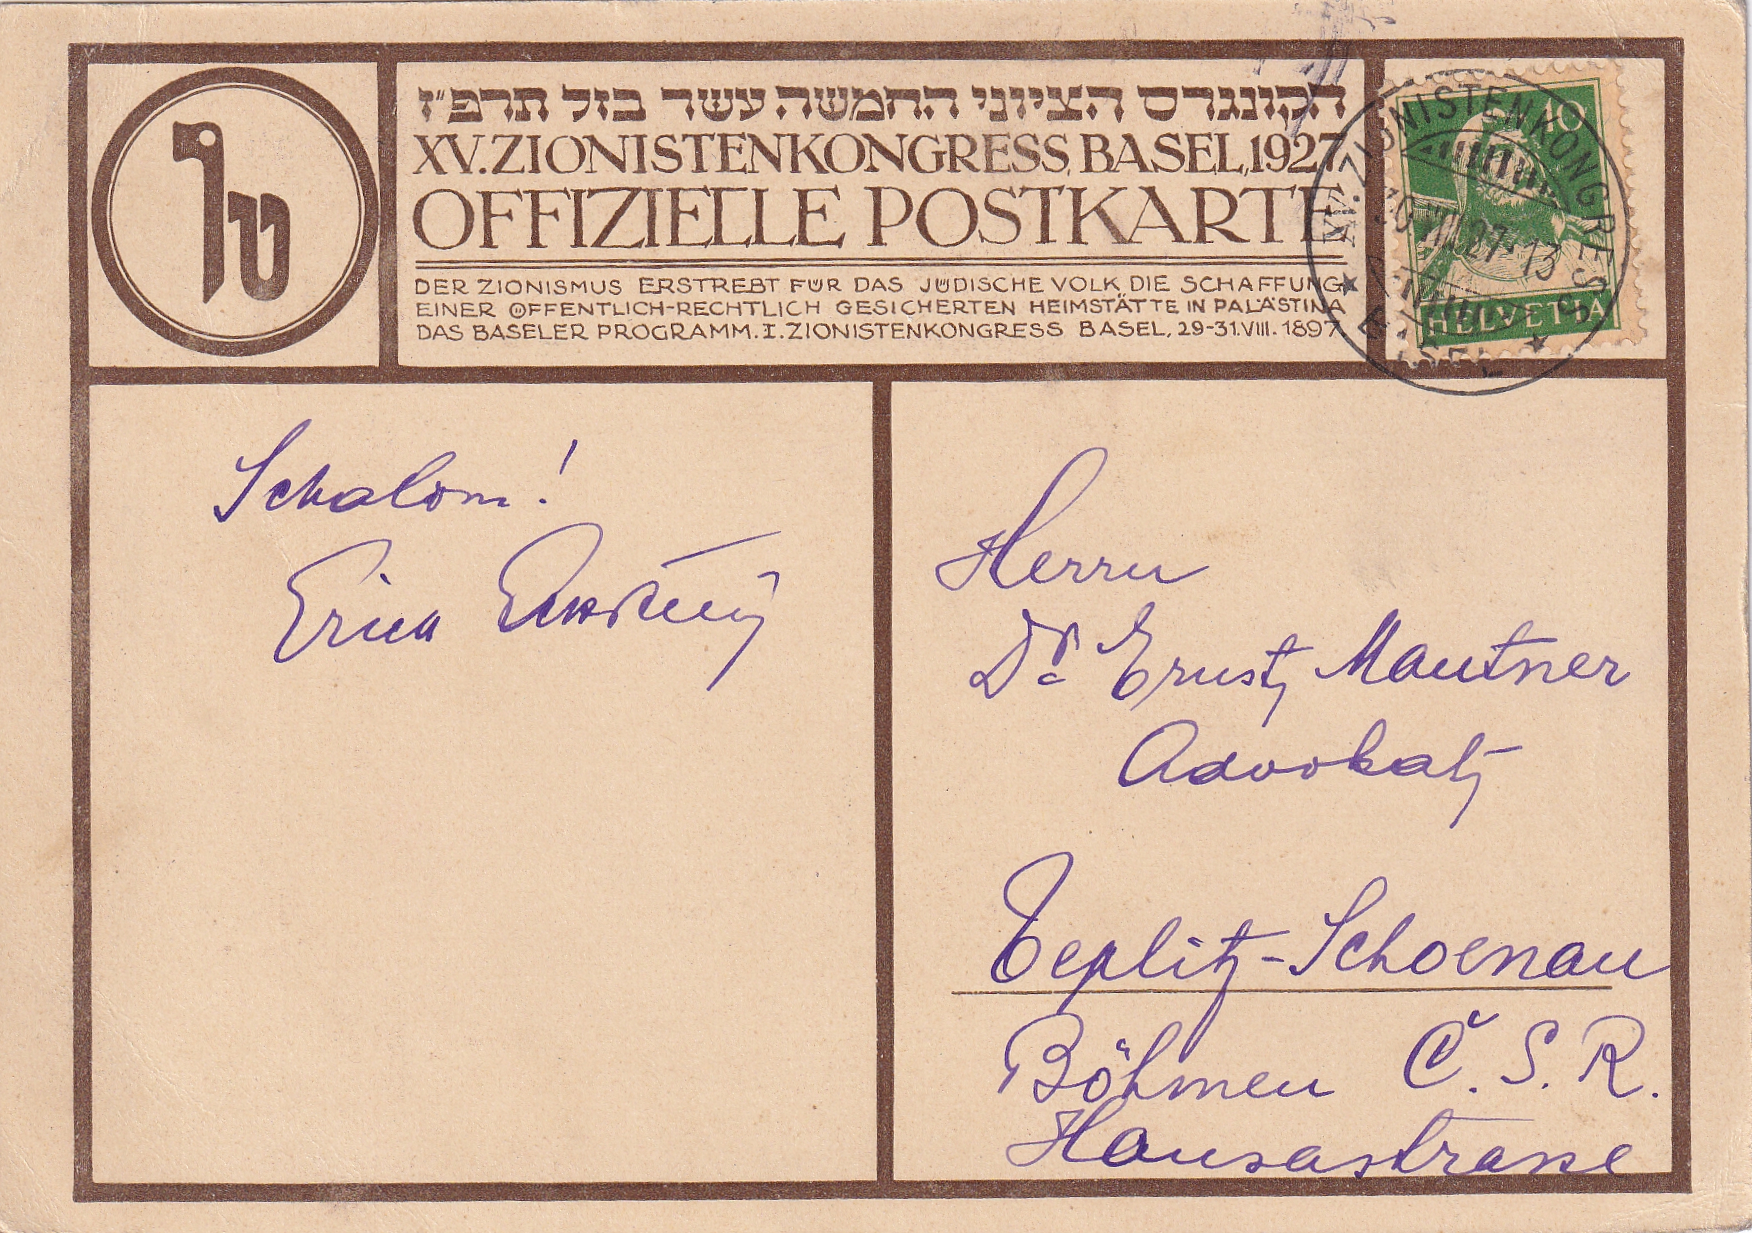 טו
הקונגרס הציוני החמשה עשר בזל תרפ״ז
XV. ZIONISTENKONGRESS, BASEL, 1927
OFFIZIELLE POSTKARTE
DER ZIONISMUS ERSTREBT FÜR DAS JÜDISCHE VOLK DIE SCHAFFUNG
EINER ÖFFENTLICH-RECHTLICH GESICHERTEN HEIMSTÄTTE IN PALÄSTINA
DAS BASELER PROGRAMM. I. ZIONISTENKONGRESS BASEL, 29-31.VIII. 1897
10
HELVETIA
XV. ZIONISTENKONGRESS
30.VIII.27-13
BASEL
Schalom!
Erich
Herrn
Dr. Ernst Mautner
Advokat
Teplitz-Schoenau
Böhmen Č.S.R.
Hansastrasse